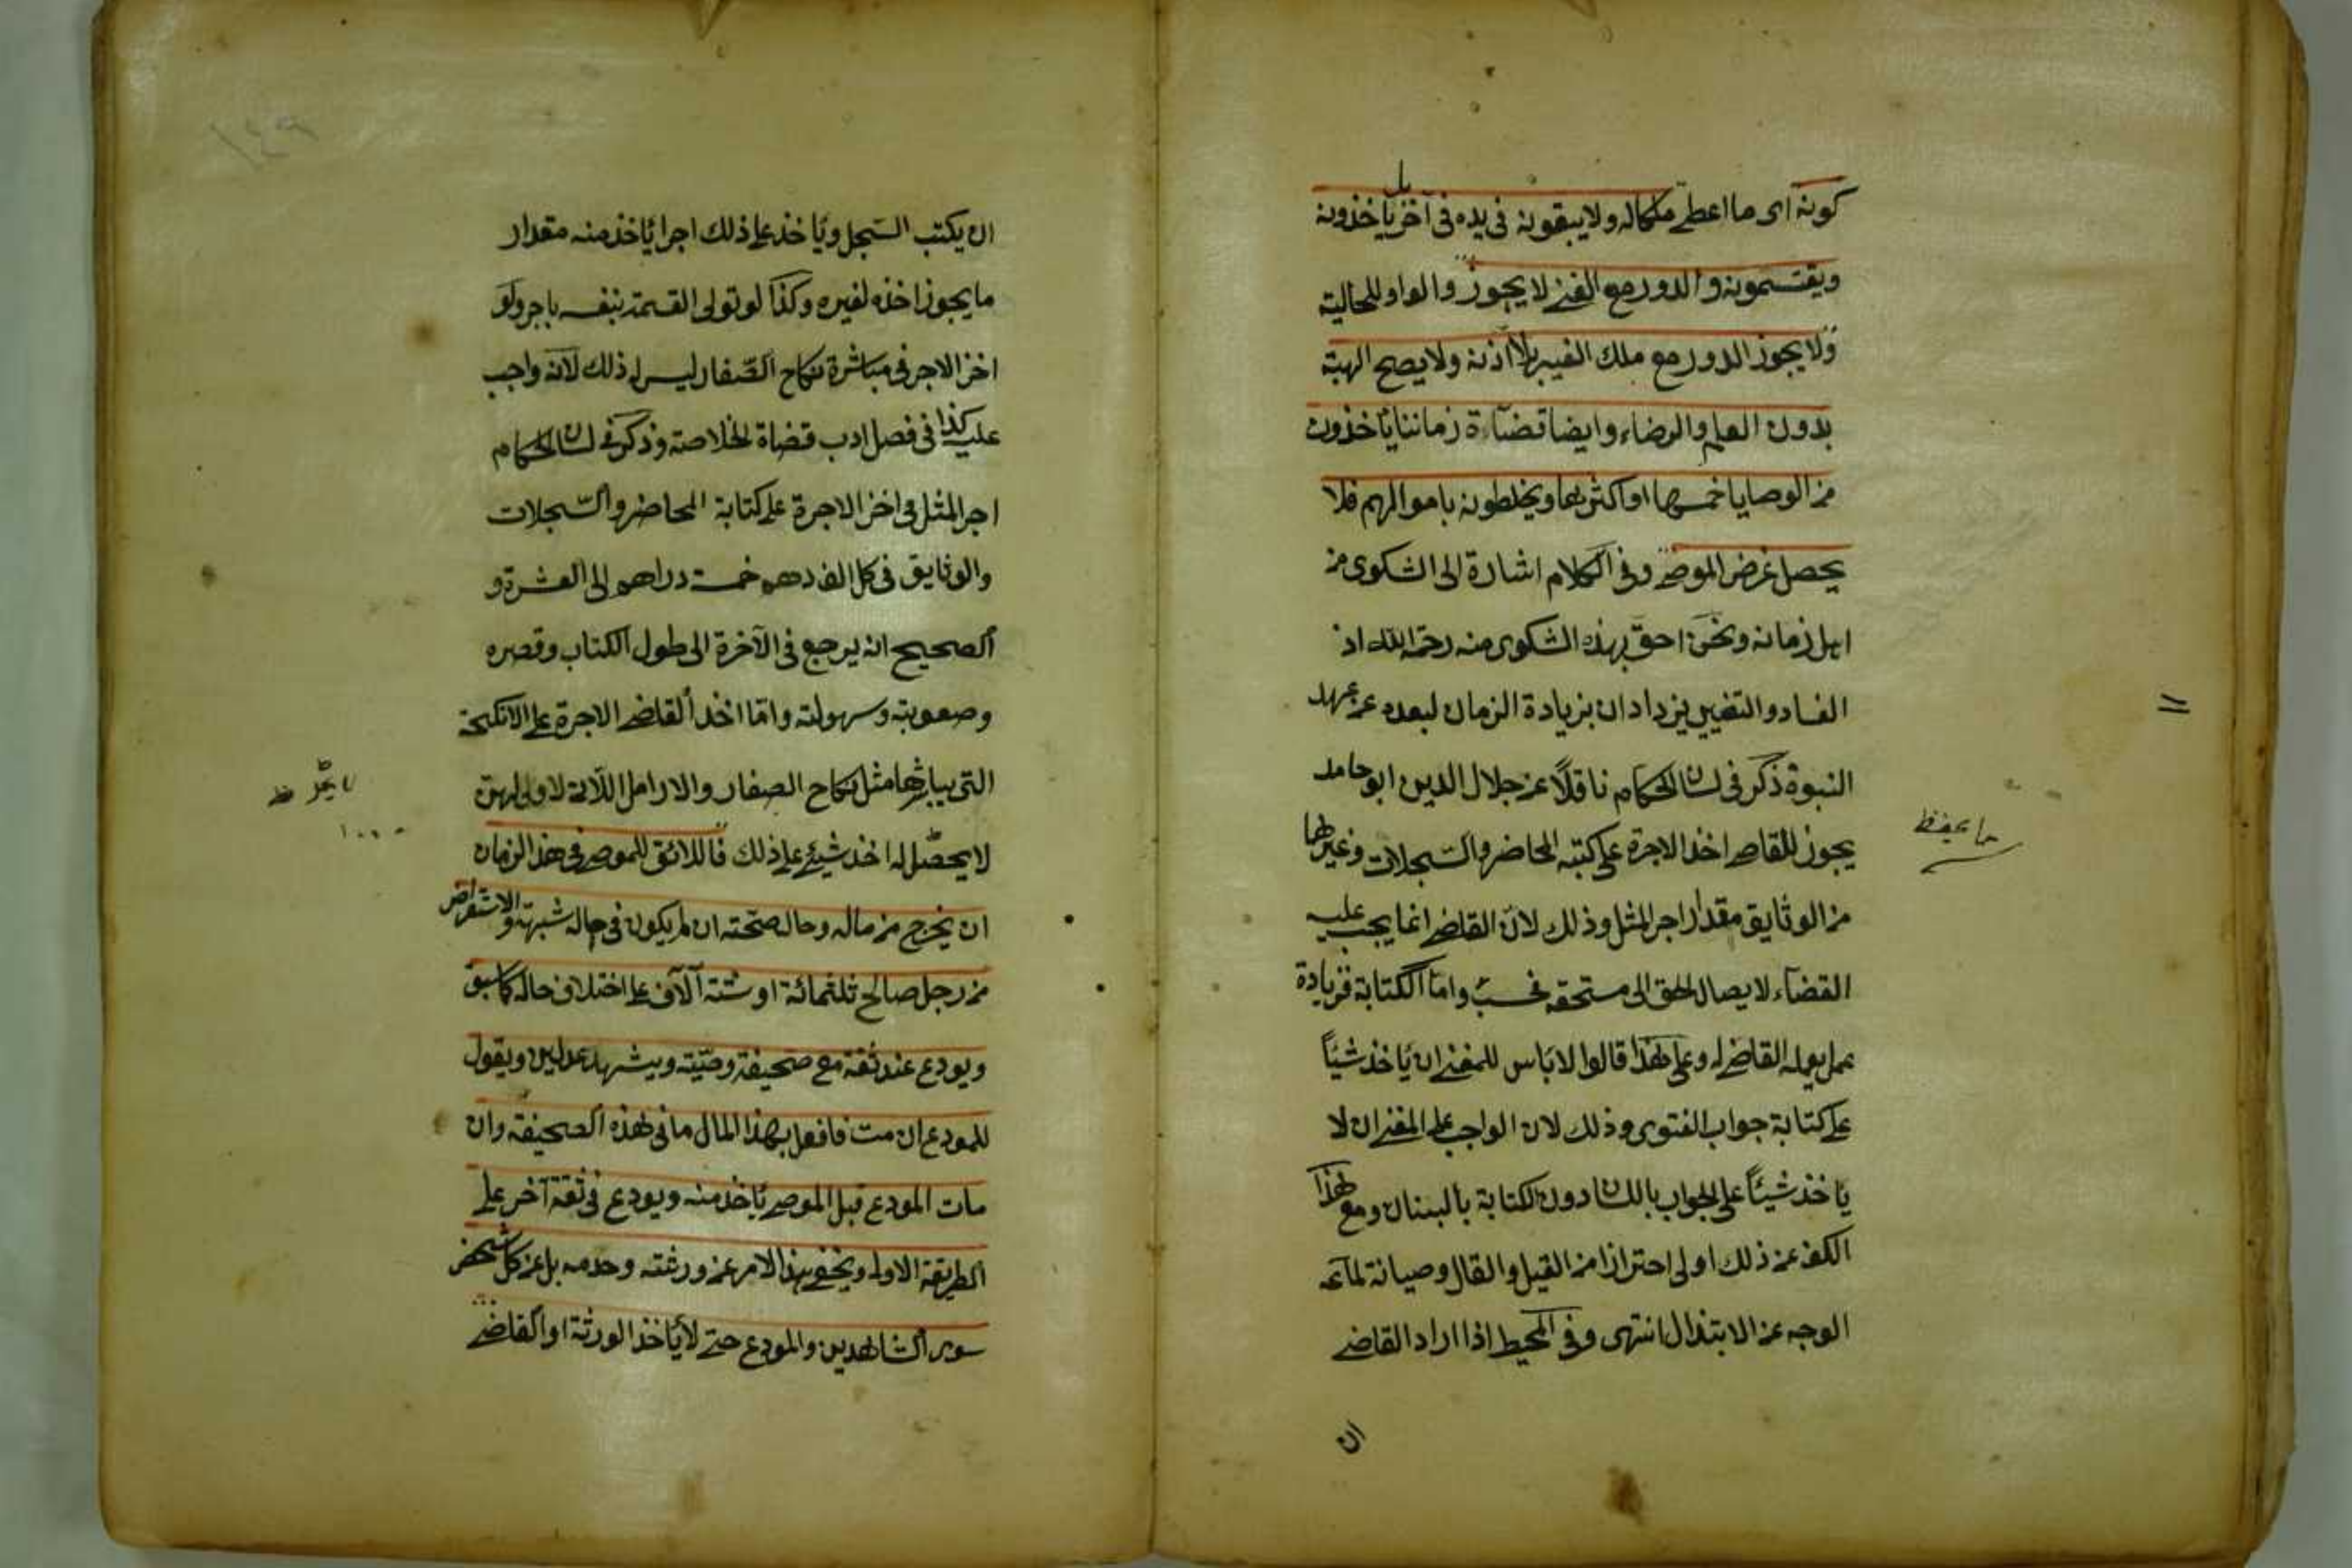 كونه اى ما اعطى ملكاله ولا يبقونه فى يده فى آخر بل يأخذونه
ويقتسمونه والدور مع الغنى لا يجوز والواو للحالية
ولا يجوز الدور مع ملك الغير بلا اذنه ولا يصح الهبة
بدون العلم والرضاء وايضا قضاة زماننا يأخذون
من الوصايا خمسها او اكثر ويخلطونه باموالهم فلا
يحصل غرض الموصى وفى الكلام اشارة الى الشكوى من
اهل زمانه ونحن احق بهذه الشكوى منه رحمه الله اذ
الفساد والتغيير يزدادان بزيادة الزمان لبعده عن عهد
النبوة ذكر فى لسان الحكام ناقلاً عن جلال الدين ابو حامد
يجوز للقاضى اخذ الاجرة على كتبه المحاضر والسجلات وغيرها
من الوثايق مقدار اجر المثل وذلك لان القاضى انما يجب عليه
القضاء لايصال الحق الى مستحقه فحسب واما الكتابة فزيادة
عمل يعمله القاضى له وعلى هذا قالوا لا بأس للمفتى ان يأخذ شيئاً
على كتابة جواب الفتوى وذلك لان الواجب على المفتى ان لا
يأخذ شيئاً على الجواب باللسان دون الكتابة بالبنان ومع هذا
الكف عن ذلك اولى احترازا من القيل والقال وصيانة لماء
الوجه عن الابتذال انتهى وفى المحيط اذا اراد القاضى
ان
ما يحفظ
ان يكتب السجل ويأخذ على ذلك اجرا يأخذ منه مقدار
ما يجوز اخذه لغيره وكذا لو تولى القسمة بنفسه باجر ولو
اخذ الاجر فى مباشرة نكاح الصغار ليس له ذلك لانه واجب
عليه كذا فى فصل ادب قضاة الخلاصة وذكر فى لسان الحكام
اجر المثل فى اخذ الاجرة على كتابة المحاضر والسجلات
والوثايق فى كل الف درهم خمسة دراهم الى العشرة و
الصحيح انه يرجع فى الآخرة الى طول الكتاب وقصره
وصعوبته وسهولته واما اخذ القاضى الاجرة على الانكحة
التى يباشرها مثل نكاح الصغار والارامل اللاتى لا ولى لهن
لا يحصل له اخذ شيئ على ذلك فاللائق للموصى فى هذا الزمان
ان يخرج من ماله وحال صحته ان لم يكون فى حاله شبهة والاستقراض
من رجل صالح ثلثمائة او ستة آلاف على اختلاف حاله كما سبق
ويودع عند ثقة مع صحيفة وصيته ويشهد عدلين ويقول
للمودع ان مت فافعل بهذا المال ما فى هذه الصحيفة وان
مات المودع قبل الموصى يأخذ منه ويودع فى ثقة آخر على
الطريقة الاولى ويخفى بهذا الامر عن ورثته وخدمه بل عن كل شخص
سوى الشاهدين والمودع حتى لا يأخذ الورثة او القاضى